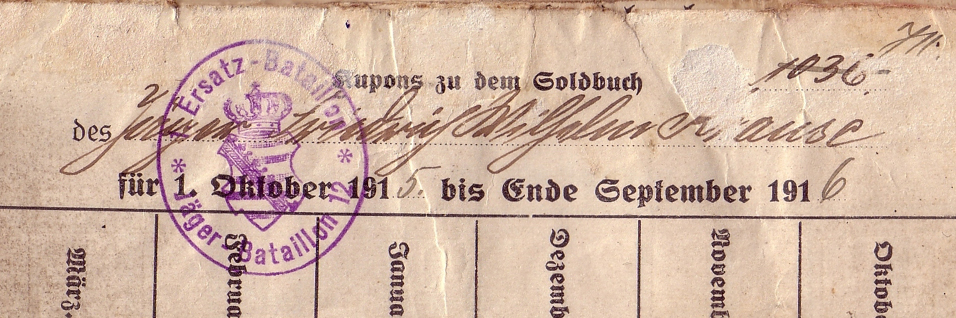 Kupons zu dem Soldbuch
1036
des Jägers Friedrich Wilhelm Krause
für 1. Oktober 1915. bis Ende September 1916
1. Ersatz-Bataillon
* Jäger-Bataillon 12 *
März.
Februa
Janua
Dezemb
Novemb
Oktobe